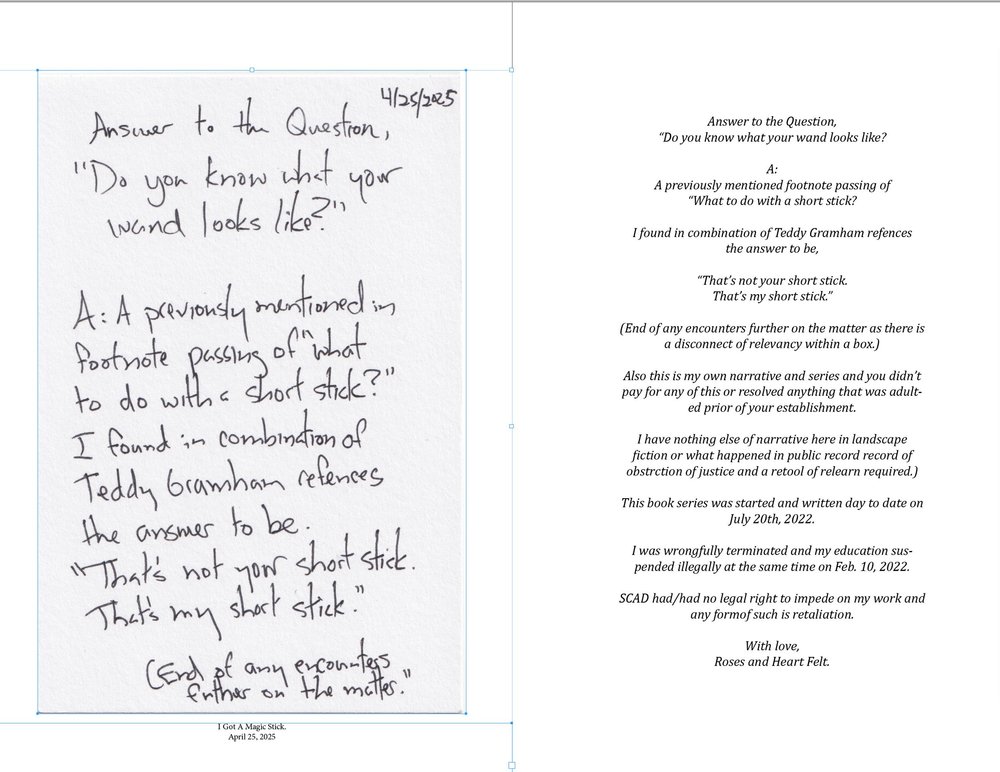 4/25/2025
Answer to the Question,
"Do you know what your
wand looks like?"
A: A previously mentioned in
footnote passing of "what
to do with a short stick?"
I found in combination of
Teddy Gramham refences
the answer to be.
"That's not your short stick.
That's my short stick."
(End of any encounters
further on the matter."
I Got A Magic Stick.
April 25, 2025
Answer to the Question,
“Do you know what your wand looks like?
A:
A previously mentioned footnote passing of
“What to do with a short stick?
I found in combination of Teddy Gramham refences
the answer to be,
“That’s not your short stick.
That’s my short stick.”
(End of any encounters further on the matter as there is
a disconnect of relevancy within a box.)
Also this is my own narrative and series and you didn’t
pay for any of this or resolved anything that was adult-
ed prior of your establishment.
I have nothing else of narrative here in landscape
fiction or what happened in public record record of
obstrction of justice and a retool of relearn required.)
This book series was started and written day to date on
July 20th, 2022.
I was wrongfully terminated and my education sus-
pended illegally at the same time on Feb. 10, 2022.
SCAD had/had no legal right to impede on my work and
any formof such is retaliation.
With love,
Roses and Heart Felt.